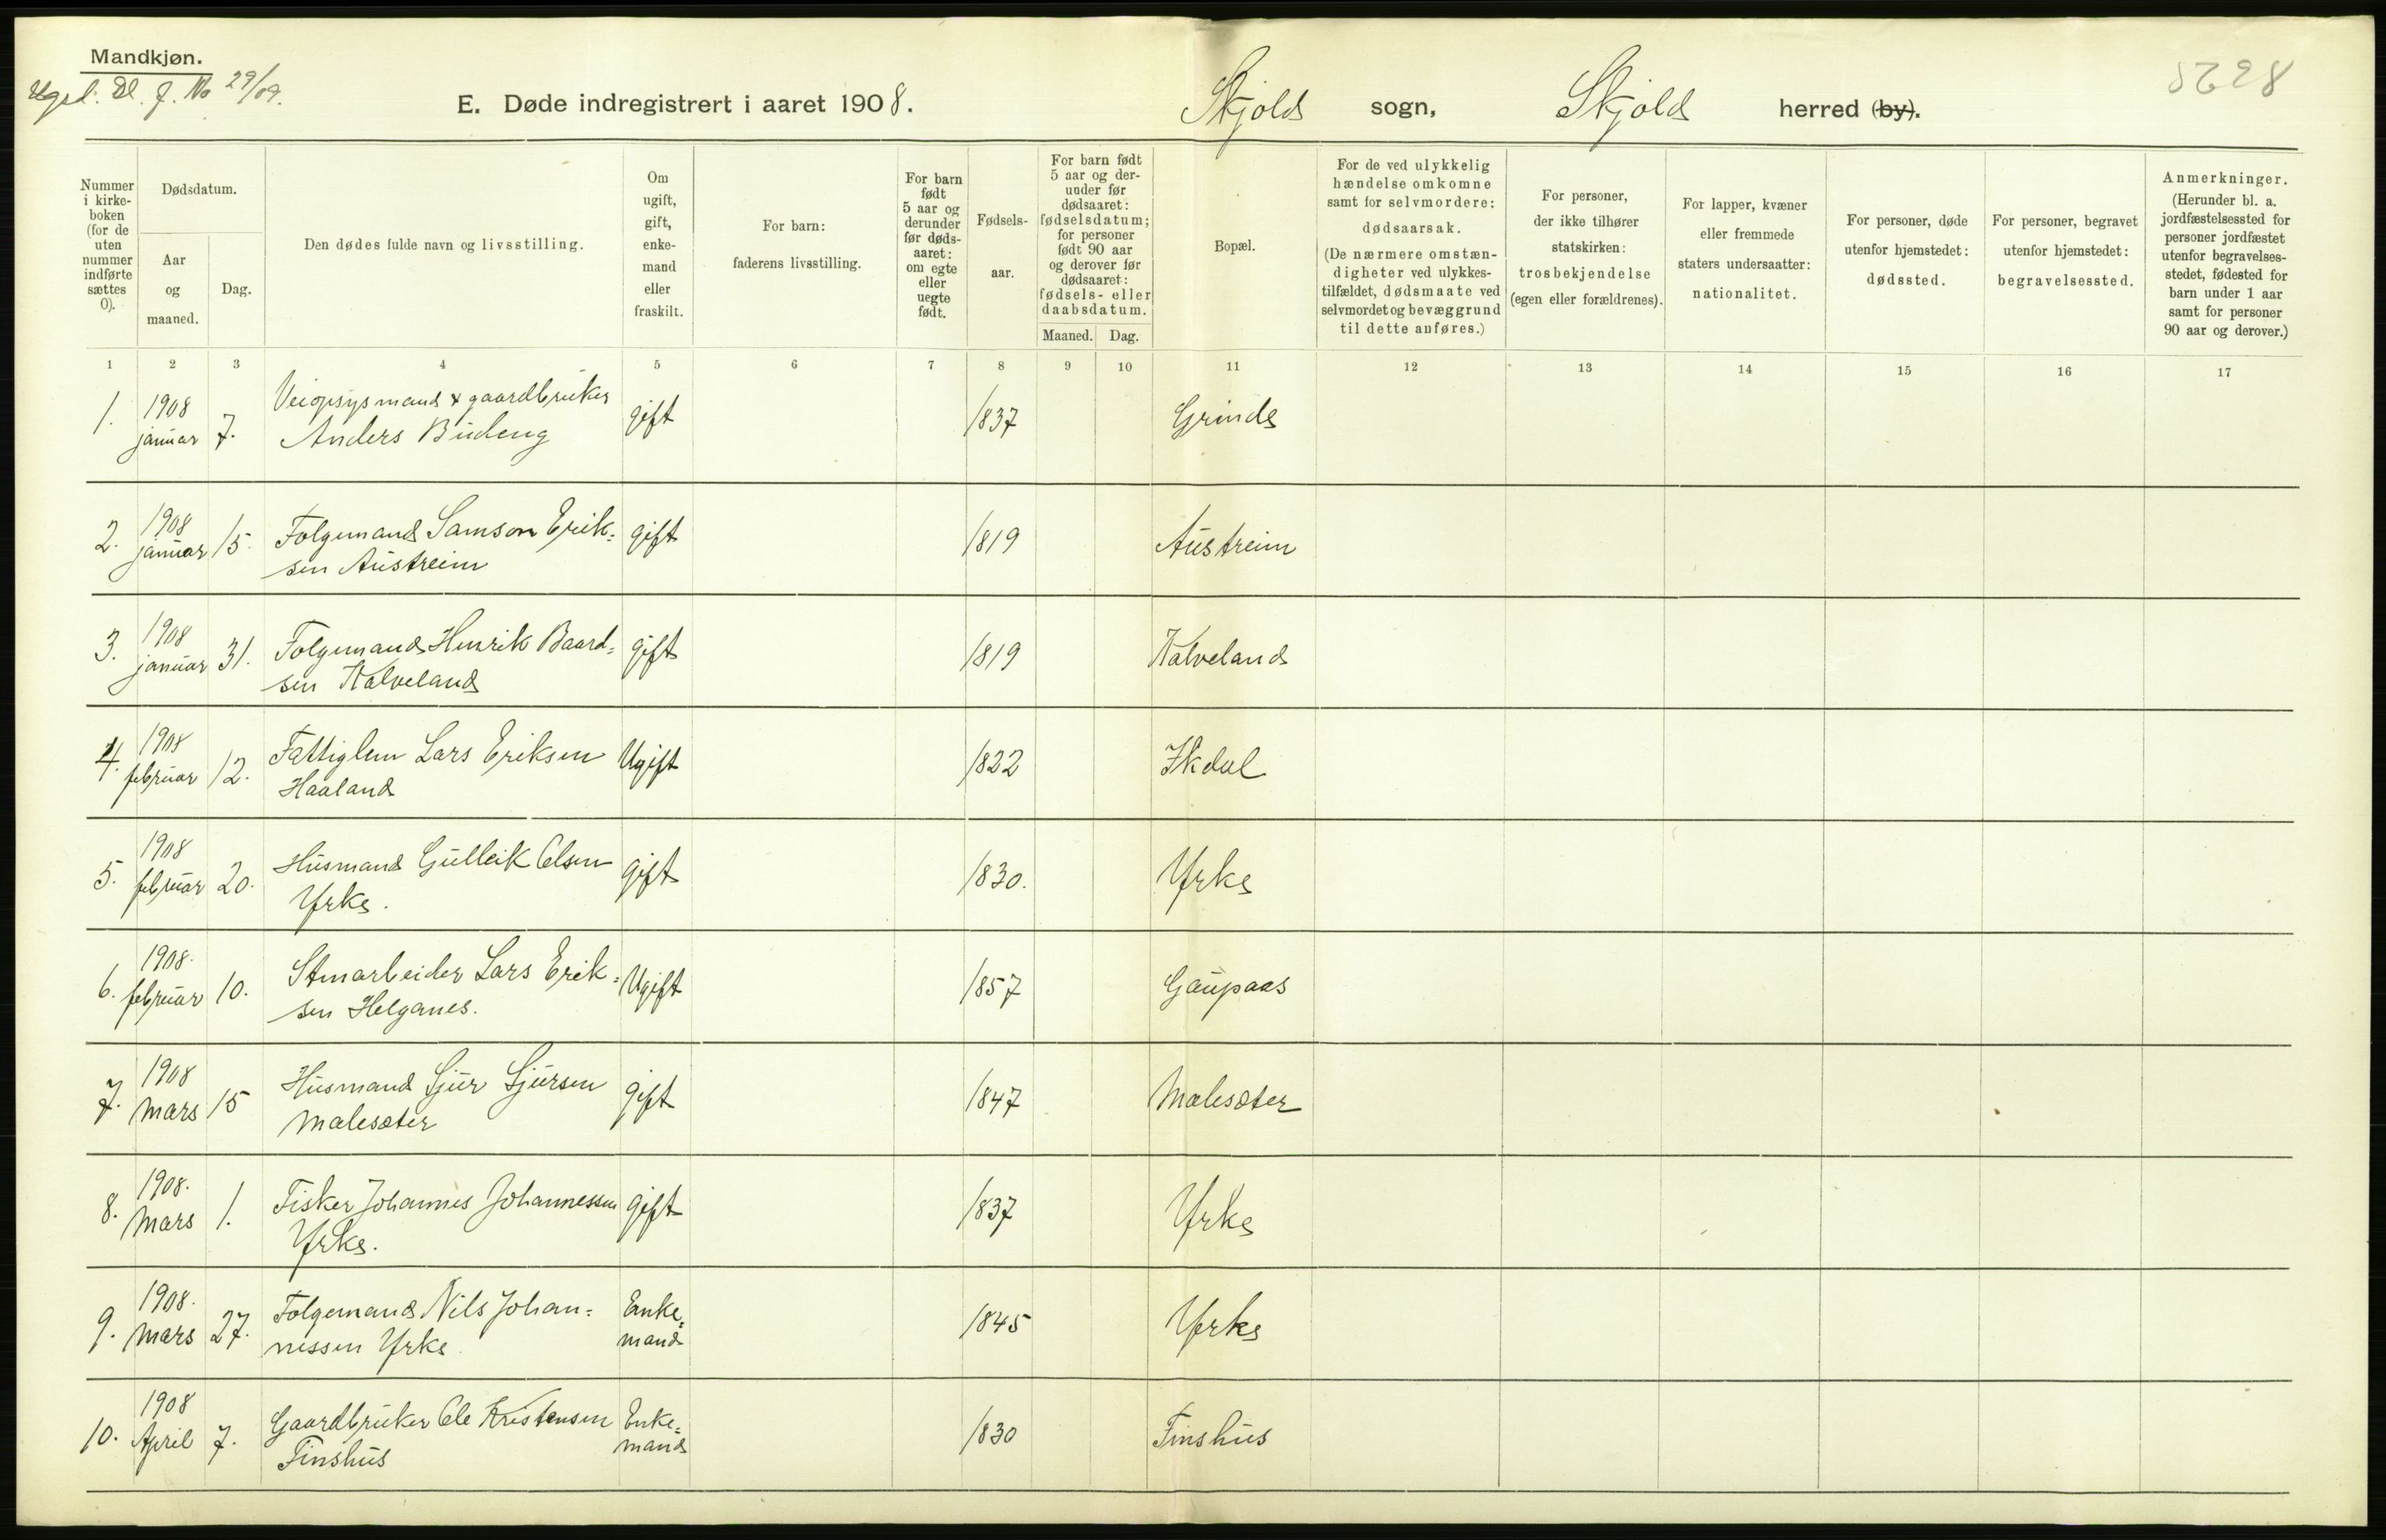 Mandkjøn.
29/09.
E. Døde indregistrert i aaret 1908. Skjold sogn, Skjold herred (by).
5628
Nummer i kirke- boken (for de uten nummer indførte sættes 0).
Dødsdatum.
Aar og maaned.
Dag.
Den dødes fulde navn og livsstilling.
Om ugift, gift, enke- mand eller fraskilt.
For barn: faderens livsstilling.
For barn født 5 aar og derunder før døds- aaret: om egte eller uegte født.
Fødsels- aar.
For barn født 5 aar og der- under før dødsaaret: fødselsdatum; for personer født 90 aar og derover før dødsaaret: fødsels- eller daabsdatum.
Maaned. Dag.
Bopæl.
For de ved ulykkelig hændelse omkomne samt for selvmordere: dødsaarsak. (De nærmere omstæn- digheter ved ulykkes- tilfældet, dødsmaate ved selvmordet og bevæggrund til dette anføres.)
For personer, der ikke tilhører statskirken: trosbekjendelse (egen eller forældrenes).
For lapper, kvæner eller fremmede staters undersaatter: nationalitet.
For personer, døde utenfor hjemstedet: dødssted.
For personer, begravet utenfor hjemstedet: begravelsessted.
Anmerkninger. (Herunder bl. a. jordfæstelsessted for personer jordfæstet utenfor begravelses- stedet, fødested for barn under 1 aar samt for personer 90 aar og derover.)
1 2 3 4 5 6 7 8 9 10 11 12 13 14 15 16 17
1. 1908 januar 7. Veiopsysmand & gaardbruker Anders Budeng gift 1837 Grinde
2. 1908 januar 15. Folgemand Samson Erik= sen Austreim gift 1819 Austreim
3. 1908 januar 31. Folgemand Henrik Baard= sen Kalveland gift 1819 Kalveland
4. 1908 februar 12. Fattiglem Lars Eriksen Haaland Ugift 1822 Ikdal
5. 1908 februar 20. Husmand Gulleik Olsen Yrke. gift 1830. Yrke
6. 1908. februar 10. Stenarbeider Lars Erik= sen Helganes. Ugift 1857 Gaupaas
7. 1908 Mars 15 Husmand Sjur Sjursen Malesæter gift 1847 Malesæter
8. 1908. Mars 1. Fisker Johannes Johannessen Yrke. gift 1837 Yrke
9. 1908. Mars 27. Folgemand Nils Johan= nessen Yrke Enke= mand 1845 Yrke
10. 1908 April 7. Gaardbruker Ole Kristensen Tinshus Enke= mand 1830 Tinshus